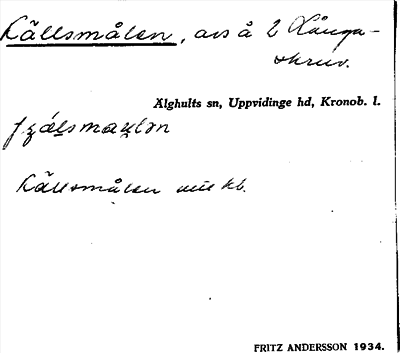 Källsmålen, avs å 2 Långa-
skruv.
Älghults sn, Uppvidinge hd, Kronob. l.
Källsmålen kb.
FRITZ ANDERSSON 1934.